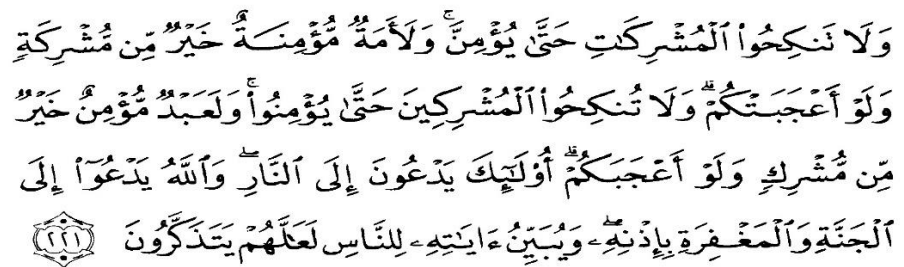 وَلَا تَنكِحُوا۟ ٱلْمُشْرِكَـٰتِ حَتَّىٰ يُؤْمِنَّ ۚ وَلَأَمَةٌ مُّؤْمِنَةٌ خَيْرٌ مِّن مُّشْرِكَةٍ
وَلَوْ أَعْجَبَتْكُمْ ۗ وَلَا تُنكِحُوا۟ ٱلْمُشْرِكِينَ حَتَّىٰ يُؤْمِنُوا۟ ۚ وَلَعَبْدٌ مُّؤْمِنٌ خَيْرٌ
مِّن مُّشْرِكٍ وَلَوْ أَعْجَبَكُمْ ۗ أُو۟لَـٰٓئِكَ يَدْعُونَ إِلَى ٱلنَّارِ ۖ وَٱللَّهُ يَدْعُوٓا۟ إِلَى
ٱلْجَنَّةِ وَٱلْمَغْفِرَةِ بِإِذْنِهِۦ ۖ وَيُبَيِّنُ ءَايَـٰتِهِۦ لِلنَّاسِ لَعَلَّهُمْ يَتَذَكَّرُونَ ﴿٢٢١﴾